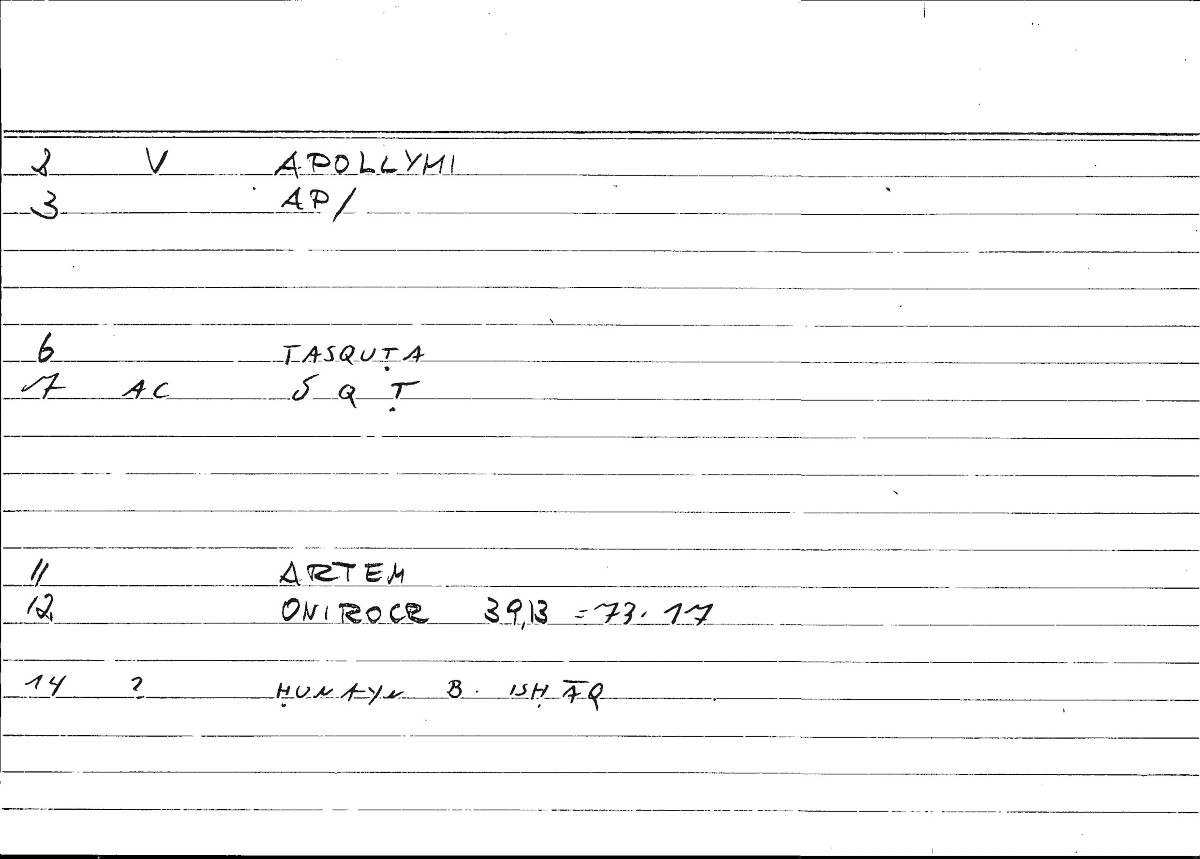 2 V APOLLYMI
3 AP/
6 TASQUṬA
7 AC S Q Ṭ
11 ARTEM
12 ONIROCR 39,13 = 73.17
14 ? ḤUNAYN B. ISḤĀQ